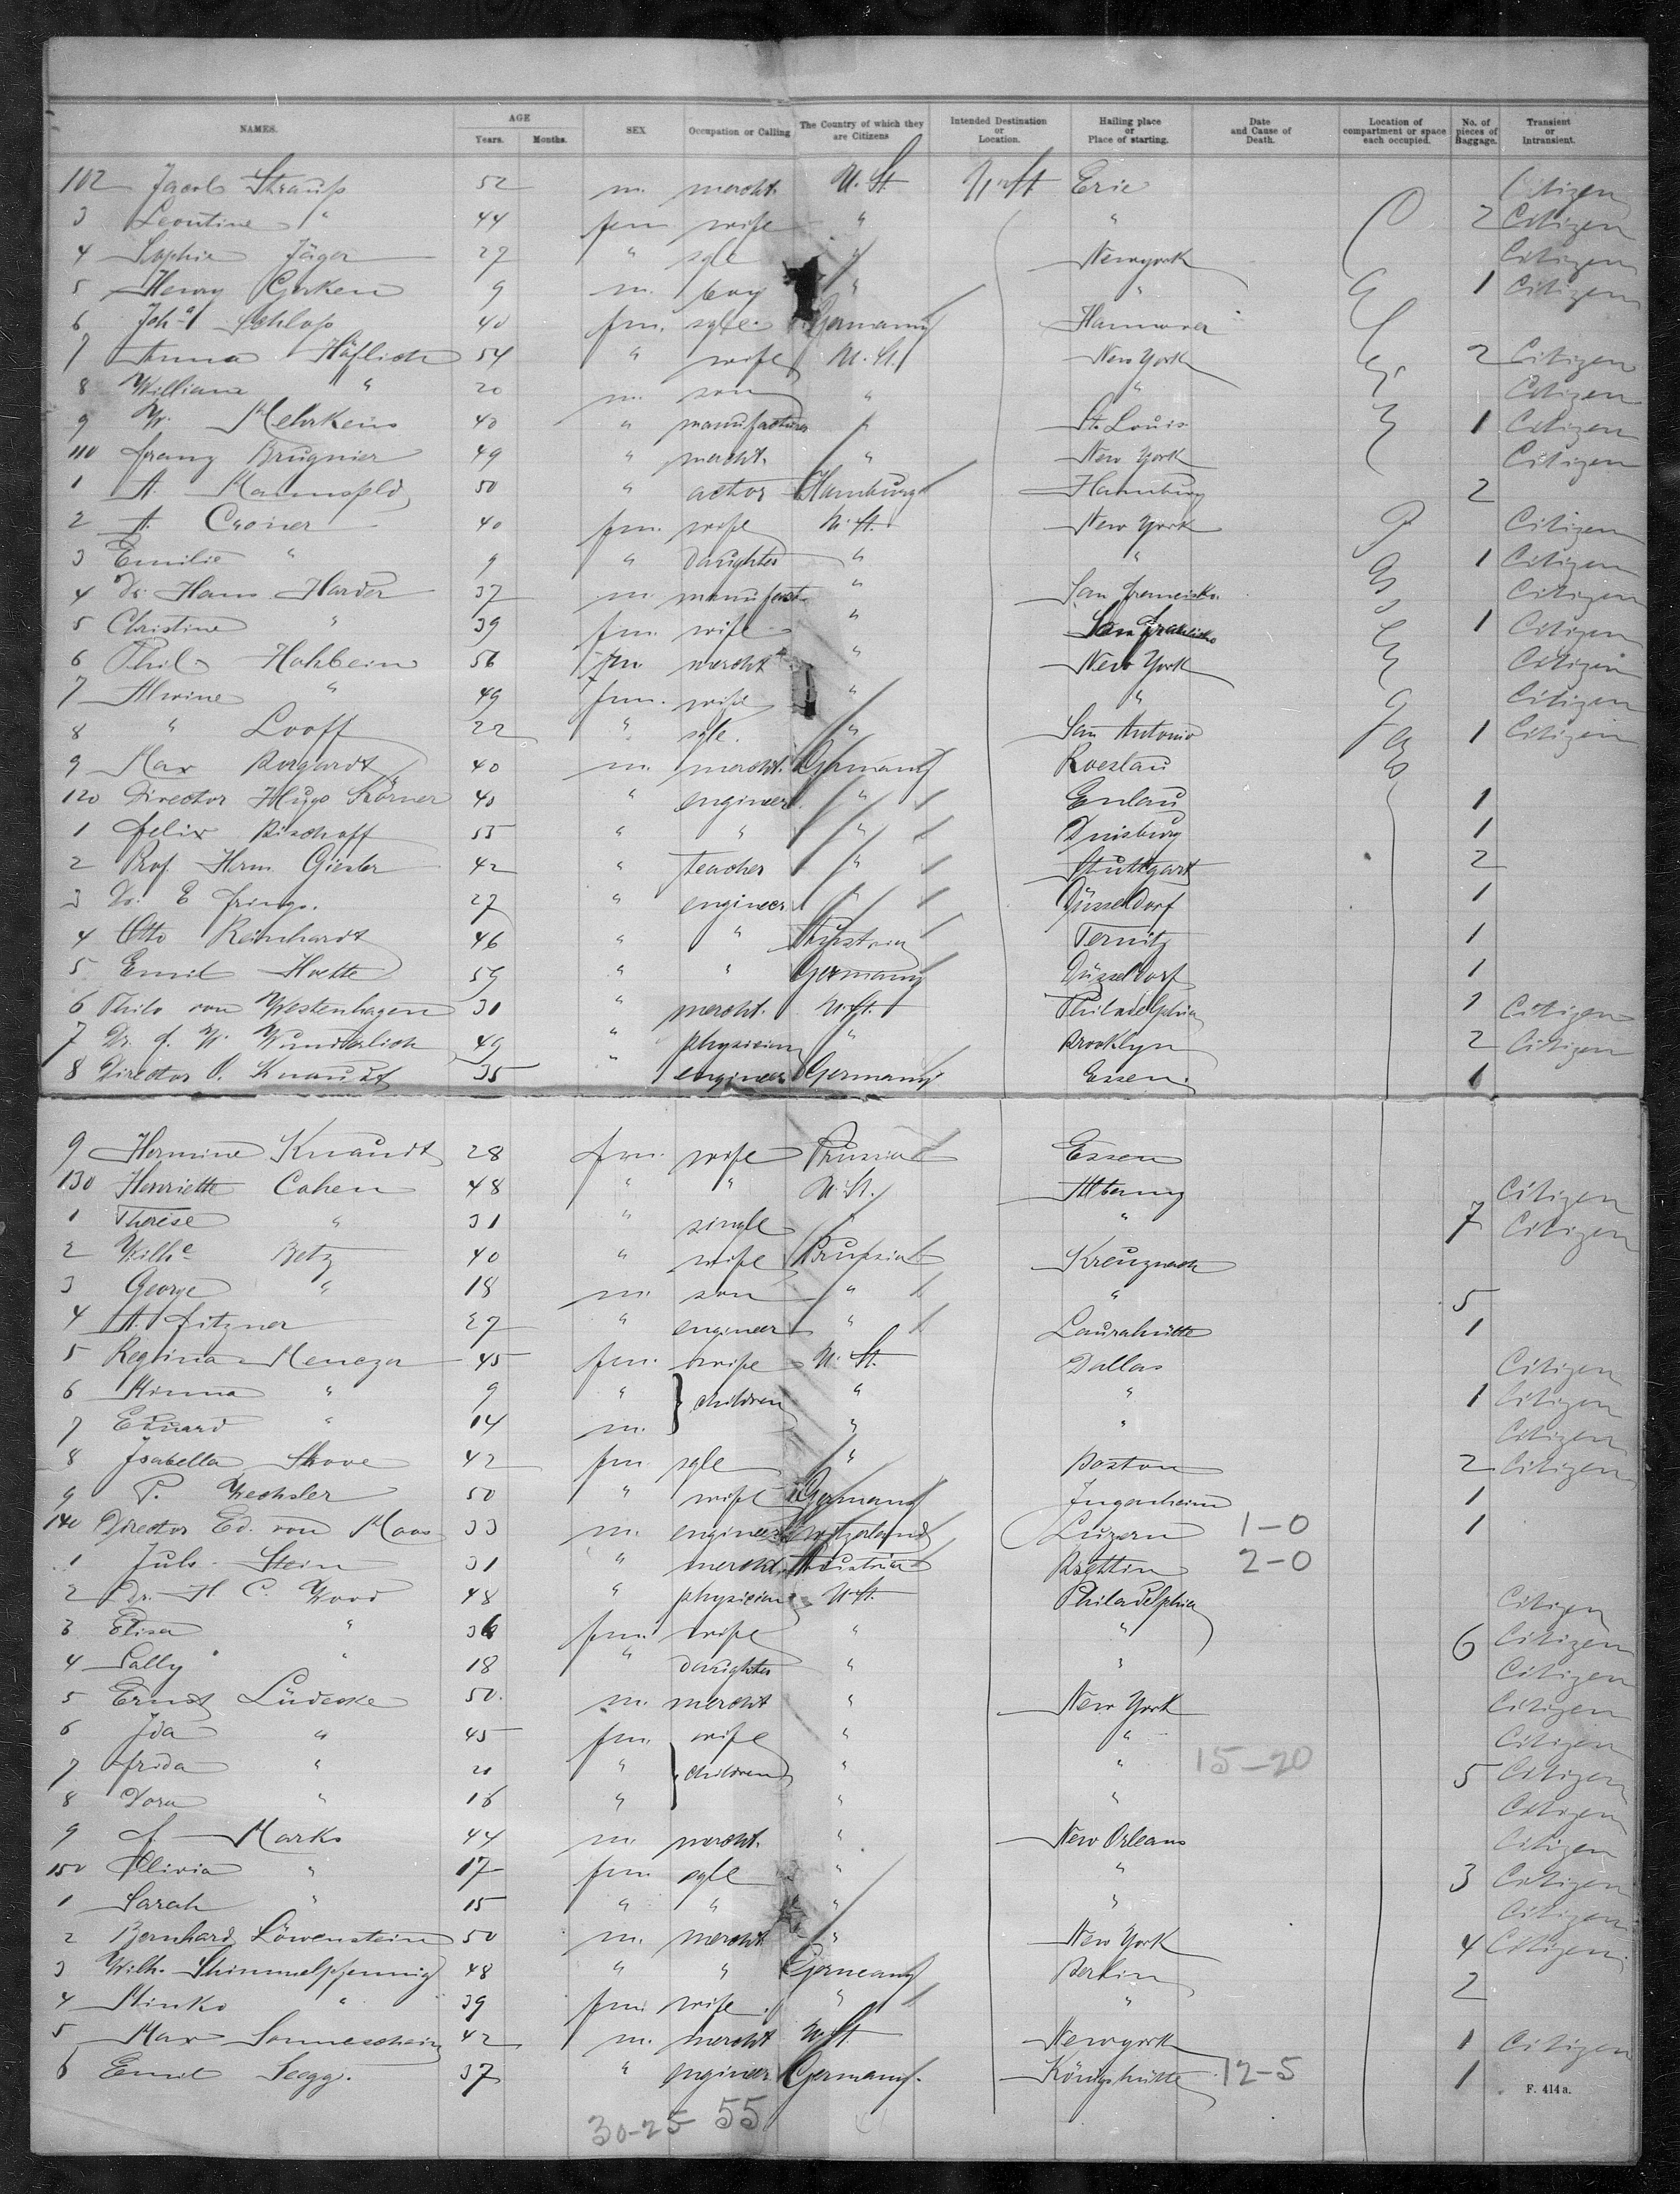 NAMES. AGE Years. Months. SEX Occupation or Calling The Country of which they are Citizens Intended Destination or Location. Hailing place or Place of starting. Date and Cause of Death. Location of compartment or space each occupied. No. of pieces of Baggage. Transient or Intransient.
102 Jacob Strauss 52 m. mercht. U. St. U. St Erie Citizen
3 Leontine " 44 fem wife " " 2 Citizen
4 Sophie Jäger 27 " sgle " Newyork Citizen
5 Henry Gerken 9 m. boy " " 1 Citizen
6 Joha Schloss 40 fm. sgle. Germany Hannover
7 Anna Häflich 54 " wife U. St. New York 2 Citizen
8 William " 20 m. son " " Citizen
9 W. Mehrkens 40 " manufacturer " St. Louis 1 Citizen
110 Franz Brugnier 49 " mercht. " New York Citizen
1 A. 50 " actor Hamburg Hamburg 2
2 A. Croner 40 fm. wife U. St. New York Citizen
3 Emilie " 9 " daughter " " 1 Citizen
4 Dr. Hans Harder 37 m. manufact. " San Francisko. Citizen
5 Christine " 39 fm. wife " San Francisko 1 Citizen
6 Phil. Hohbein 56 fm. mercht " New York Citizen
7 Alwine " 49 fm. wife " " Citizen
8 " Looff 22 " sgle. " San Antonio 1 Citizen
9 Max Bergardt 40 m. mercht. Germany
120 Director Hugo Körner 40 " engineer " 1
1 Felix Bischoff 55 " " " Duisburg 1
2 Prof. Herm. Giesler 42 " teacher " Stuttgart 2
3 Dr. E Frings. 27 " engineer " Düsseldorf 1
4 Otto Reinhardt 46 " " Austria Ternitz 1
5 Emil Hoette 59 " " Germany Düsseldorf 1
6 Thilo von Westenhagen 30 " mercht. U. St. Philadelphia 1 Citizen
7 Dr. F. W. Wunderlich 49 " physician " Brooklyn 2 Citizen
8 Director O. Knaudt 35 " engineer Germany Essen. 1
9 Hermine Knaudt 28 fm. wife Prussia Essen
130 Henriette Cohen 48 " " U. St. Albany Citizen
1 Therese " 31 " single " " 7 Citizen
2 Wilhe Betz 40 " wife Prussia Kreuznach
3 George " 18 m. son " " 5
4 A. Fitzner 27 " engineer " Laurahütte 1
5 Regina 45 fem. wife U. St. Dallas Citizen
6 Minna " 9 " children " " 1 Citizen
7 Eduard " 14 m. " " Citizen
8 Isabella Shove 42 fm sgle " Boston 2 Citizen
9 P. Wechsler 50 " wife Germany Jugenheim 1
140 Director Ed. von Moos 33 m. engineer Switzerland Luzern 1-0 1
1 Juls. Stein 31 " mercht. Austria 2-0
2 Dr. H. C. Wood 48 " physician U. St. Philadelphia Citizen
3 Elisa " 36 fm. wife " " 6 Citizen
4 Sally " 18 " daughter " " Citizen
5 Ernst Lüdecke 50. m. mercht " New York Citizen
6 Ida " 45 fm. wife " " Citizen
7 Frida " 20 " children " " 15-20 5 Citizen
8 Dora " 16 " " " Citizen
9 F. Marks 44 m. mercht. " New Orleans Citizen
150 Olivia " 17 fm sgle " " 3 Citizen
1 Sarah " 15 " " " " Citizen
2 Bernhard Löwenstein 50 m. mercht " New York 4 Citizen
3 Wilh. Shimmelpfennig 48 " " Germany Berlin 2
4 Minko " 39 fm. wife " "
5 Max Sonneschein 42 m. mercht U. St Newyork 1 Citizen
6 Emil 37 " engineer Germany. Königshütte 12-5 1
F. 414 a.
30-25 55